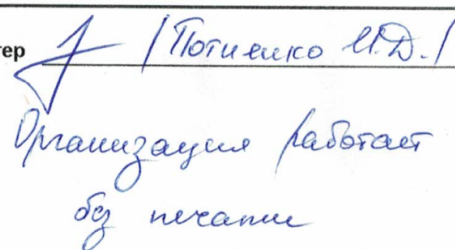 тер / Потиенко И.Д. /
Организация работает
без печати